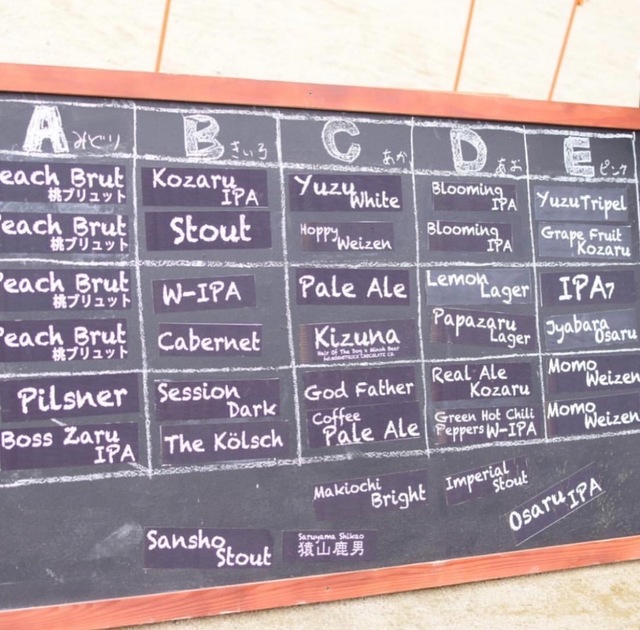 A みどり
B きいろ
C あか
D あお
E ピンク
each Brut
桃ブリュット
Kozaru
IPA
Yuzu
White
Blooming
IPA
Yuzu Tripel
Peach Brut
桃ブリュット
Stout
Hoppy
Weizen
Blooming
IPA
Grape Fruit
Kozaru
Peach Brut
桃ブリュット
W-IPA
Pale Ale
Lemon
Lager
IPA7
Peach Brut
桃ブリュット
Cabernet
Kizuna
Hair Of The Dog x Minoh Beer
Papazaru
Lager
Jyabara
Osaru
Pilsner
Session
Dark
God Father
Real Ale
Kozaru
Momo
Weizen
Boss Zaru
IPA
The Kölsch
Coffee
Pale Ale
Green Hot Chili
Peppers W-IPA
Momo
Weizen
Makiochi
Bright
Imperial
Stout
Osaru IPA
Sansho
Stout
Saruyama Shikao
猿山鹿男